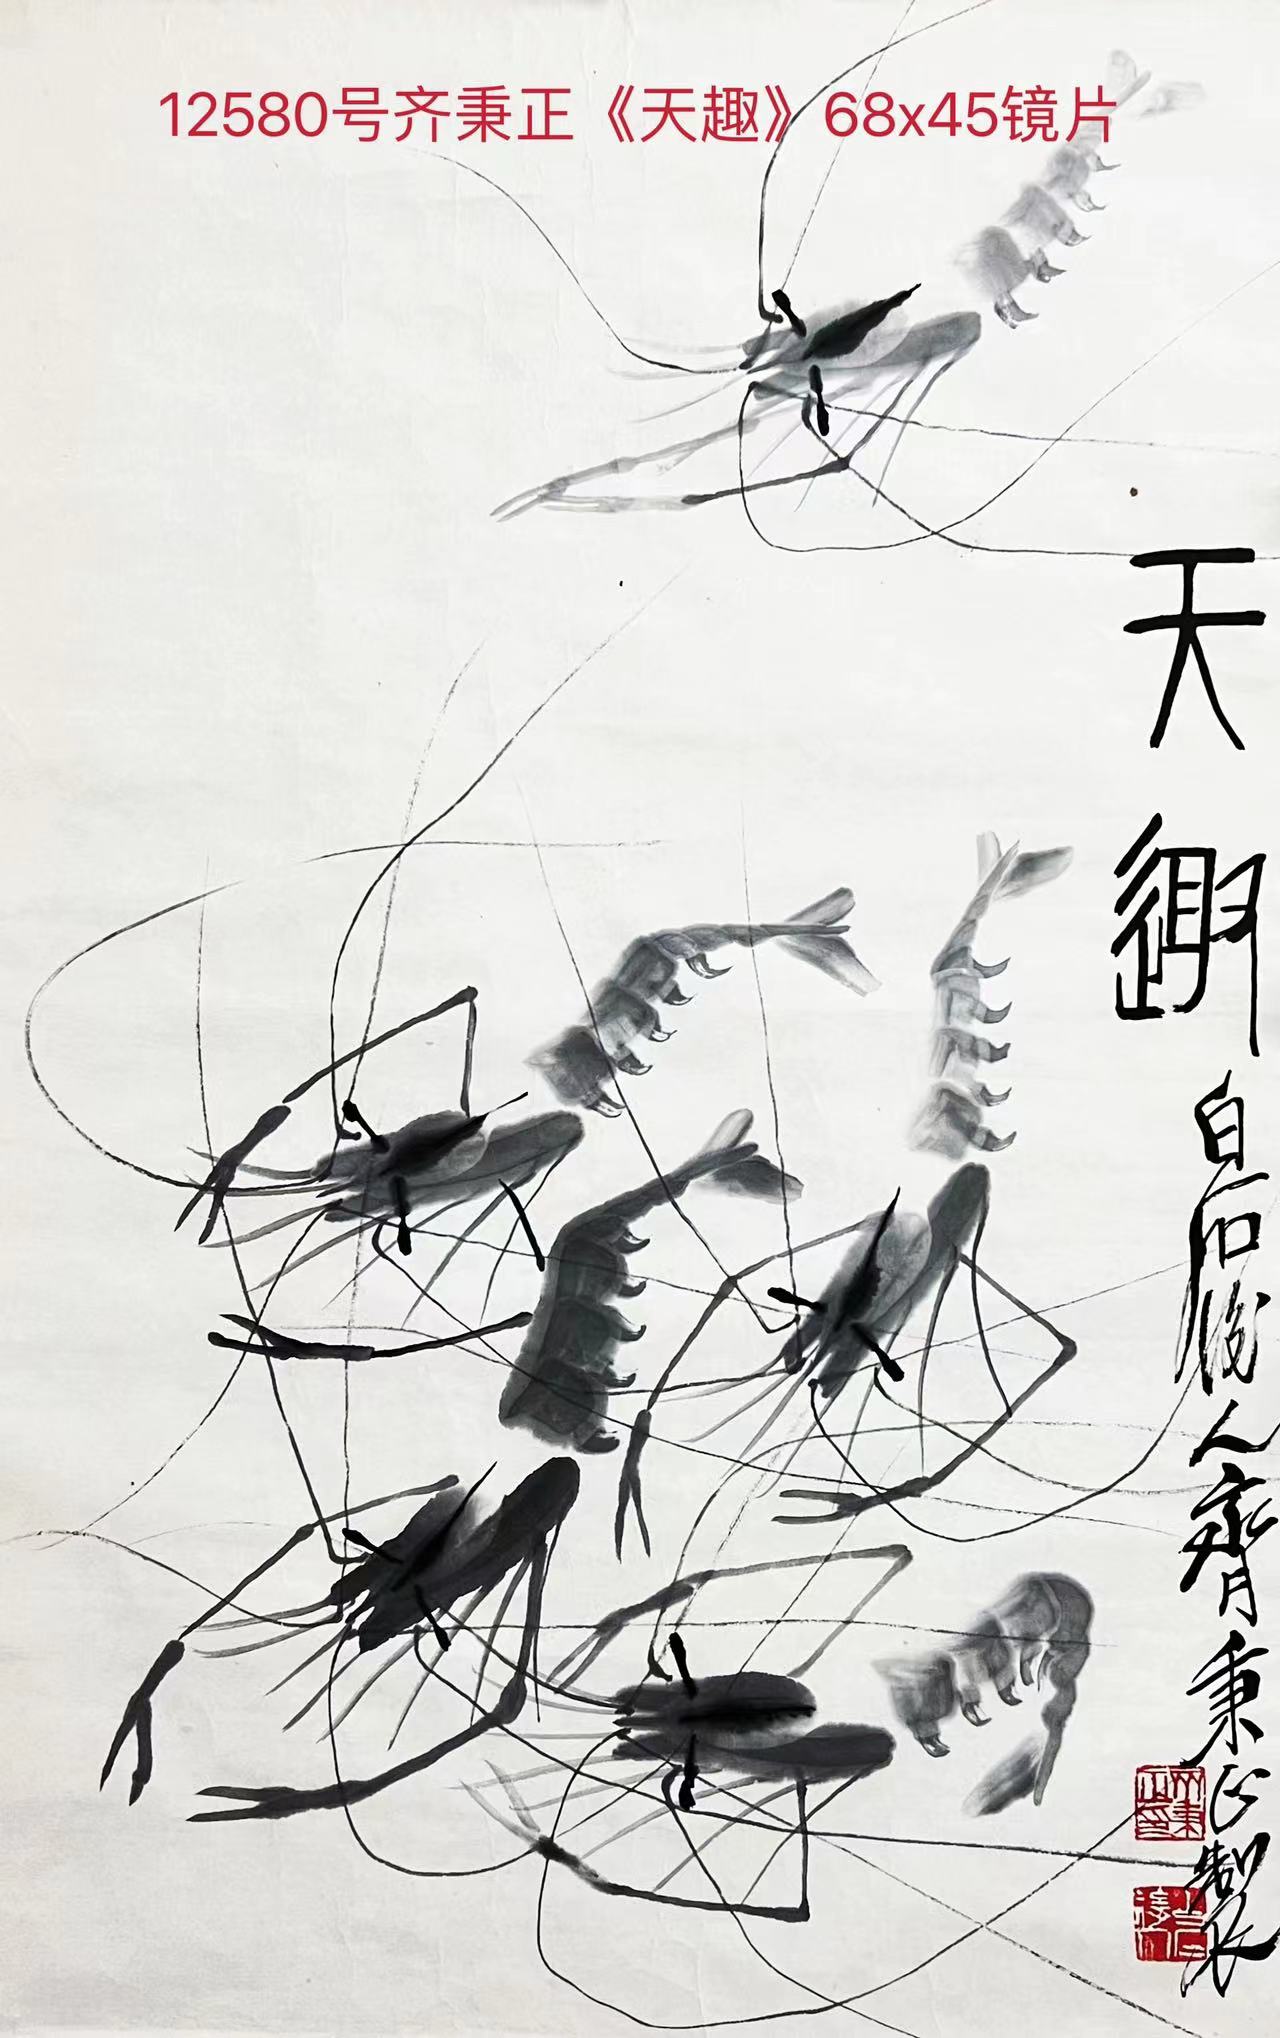 12580号齐秉正《天趣》68x45镜片
天趣
白石後人齊秉正製
齊秉正印